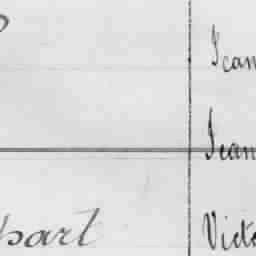 Jean
Jean
part Victo